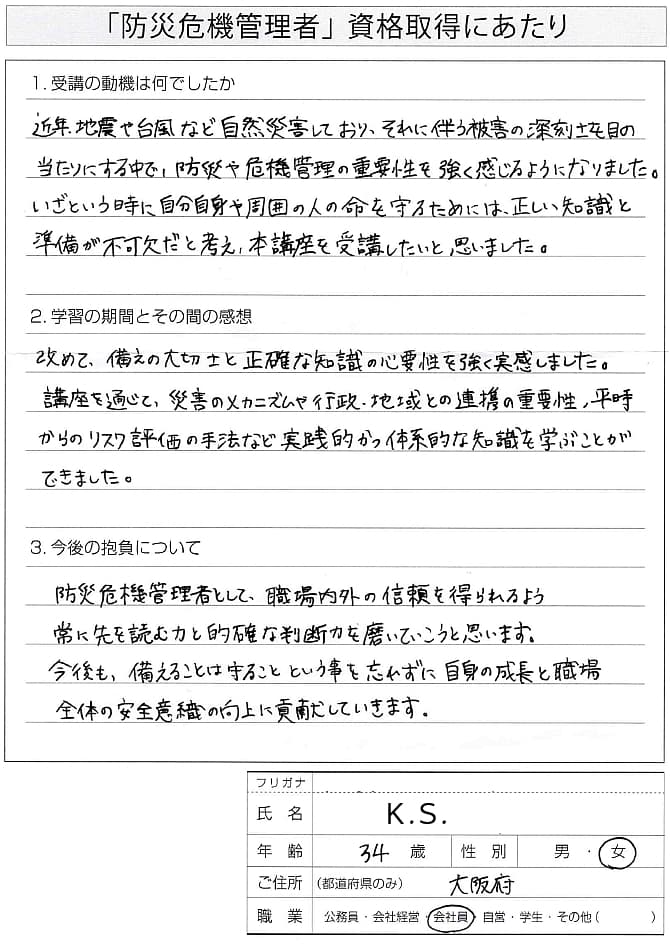 「防災危機管理者」資格取得にあたり
1. 受講の動機は何でしたか
近年、地震や台風など自然災害しており、それに伴う被害の深刻さを目の
当たりにする中で、防災や危機管理の重要性を強く感じるようになりました。
いざという時に自分自身や周囲の人の命を守るためには、正しい知識と
準備が不可欠だと考え、本講座を受講したいと思いました。
2. 学習の期間とその間の感想
改めて、備えの大切さと正確な知識の必要性を強く実感しました。
講座を通じて、災害のメカニズムや行政・地域との連携の重要性、平時
からのリスク評価の手法など実践的かつ体系的な知識を学ぶことが
できました。
3. 今後の抱負について
防災危機管理者として、職場内外の信頼を得られるよう
常に先を読む力と的確な判断力を磨いていこうと思います。
今後も、備えることは守ることという事を忘れずに自身の成長と職場
全体の安全意識の向上に貢献していきます。
フリガナ
氏名 K.S.
年齢 34 歳 性別 男・女
ご住所 (都道府県のみ) 大阪府
職業 公務員・会社経営・会社員・自営・学生・その他( )